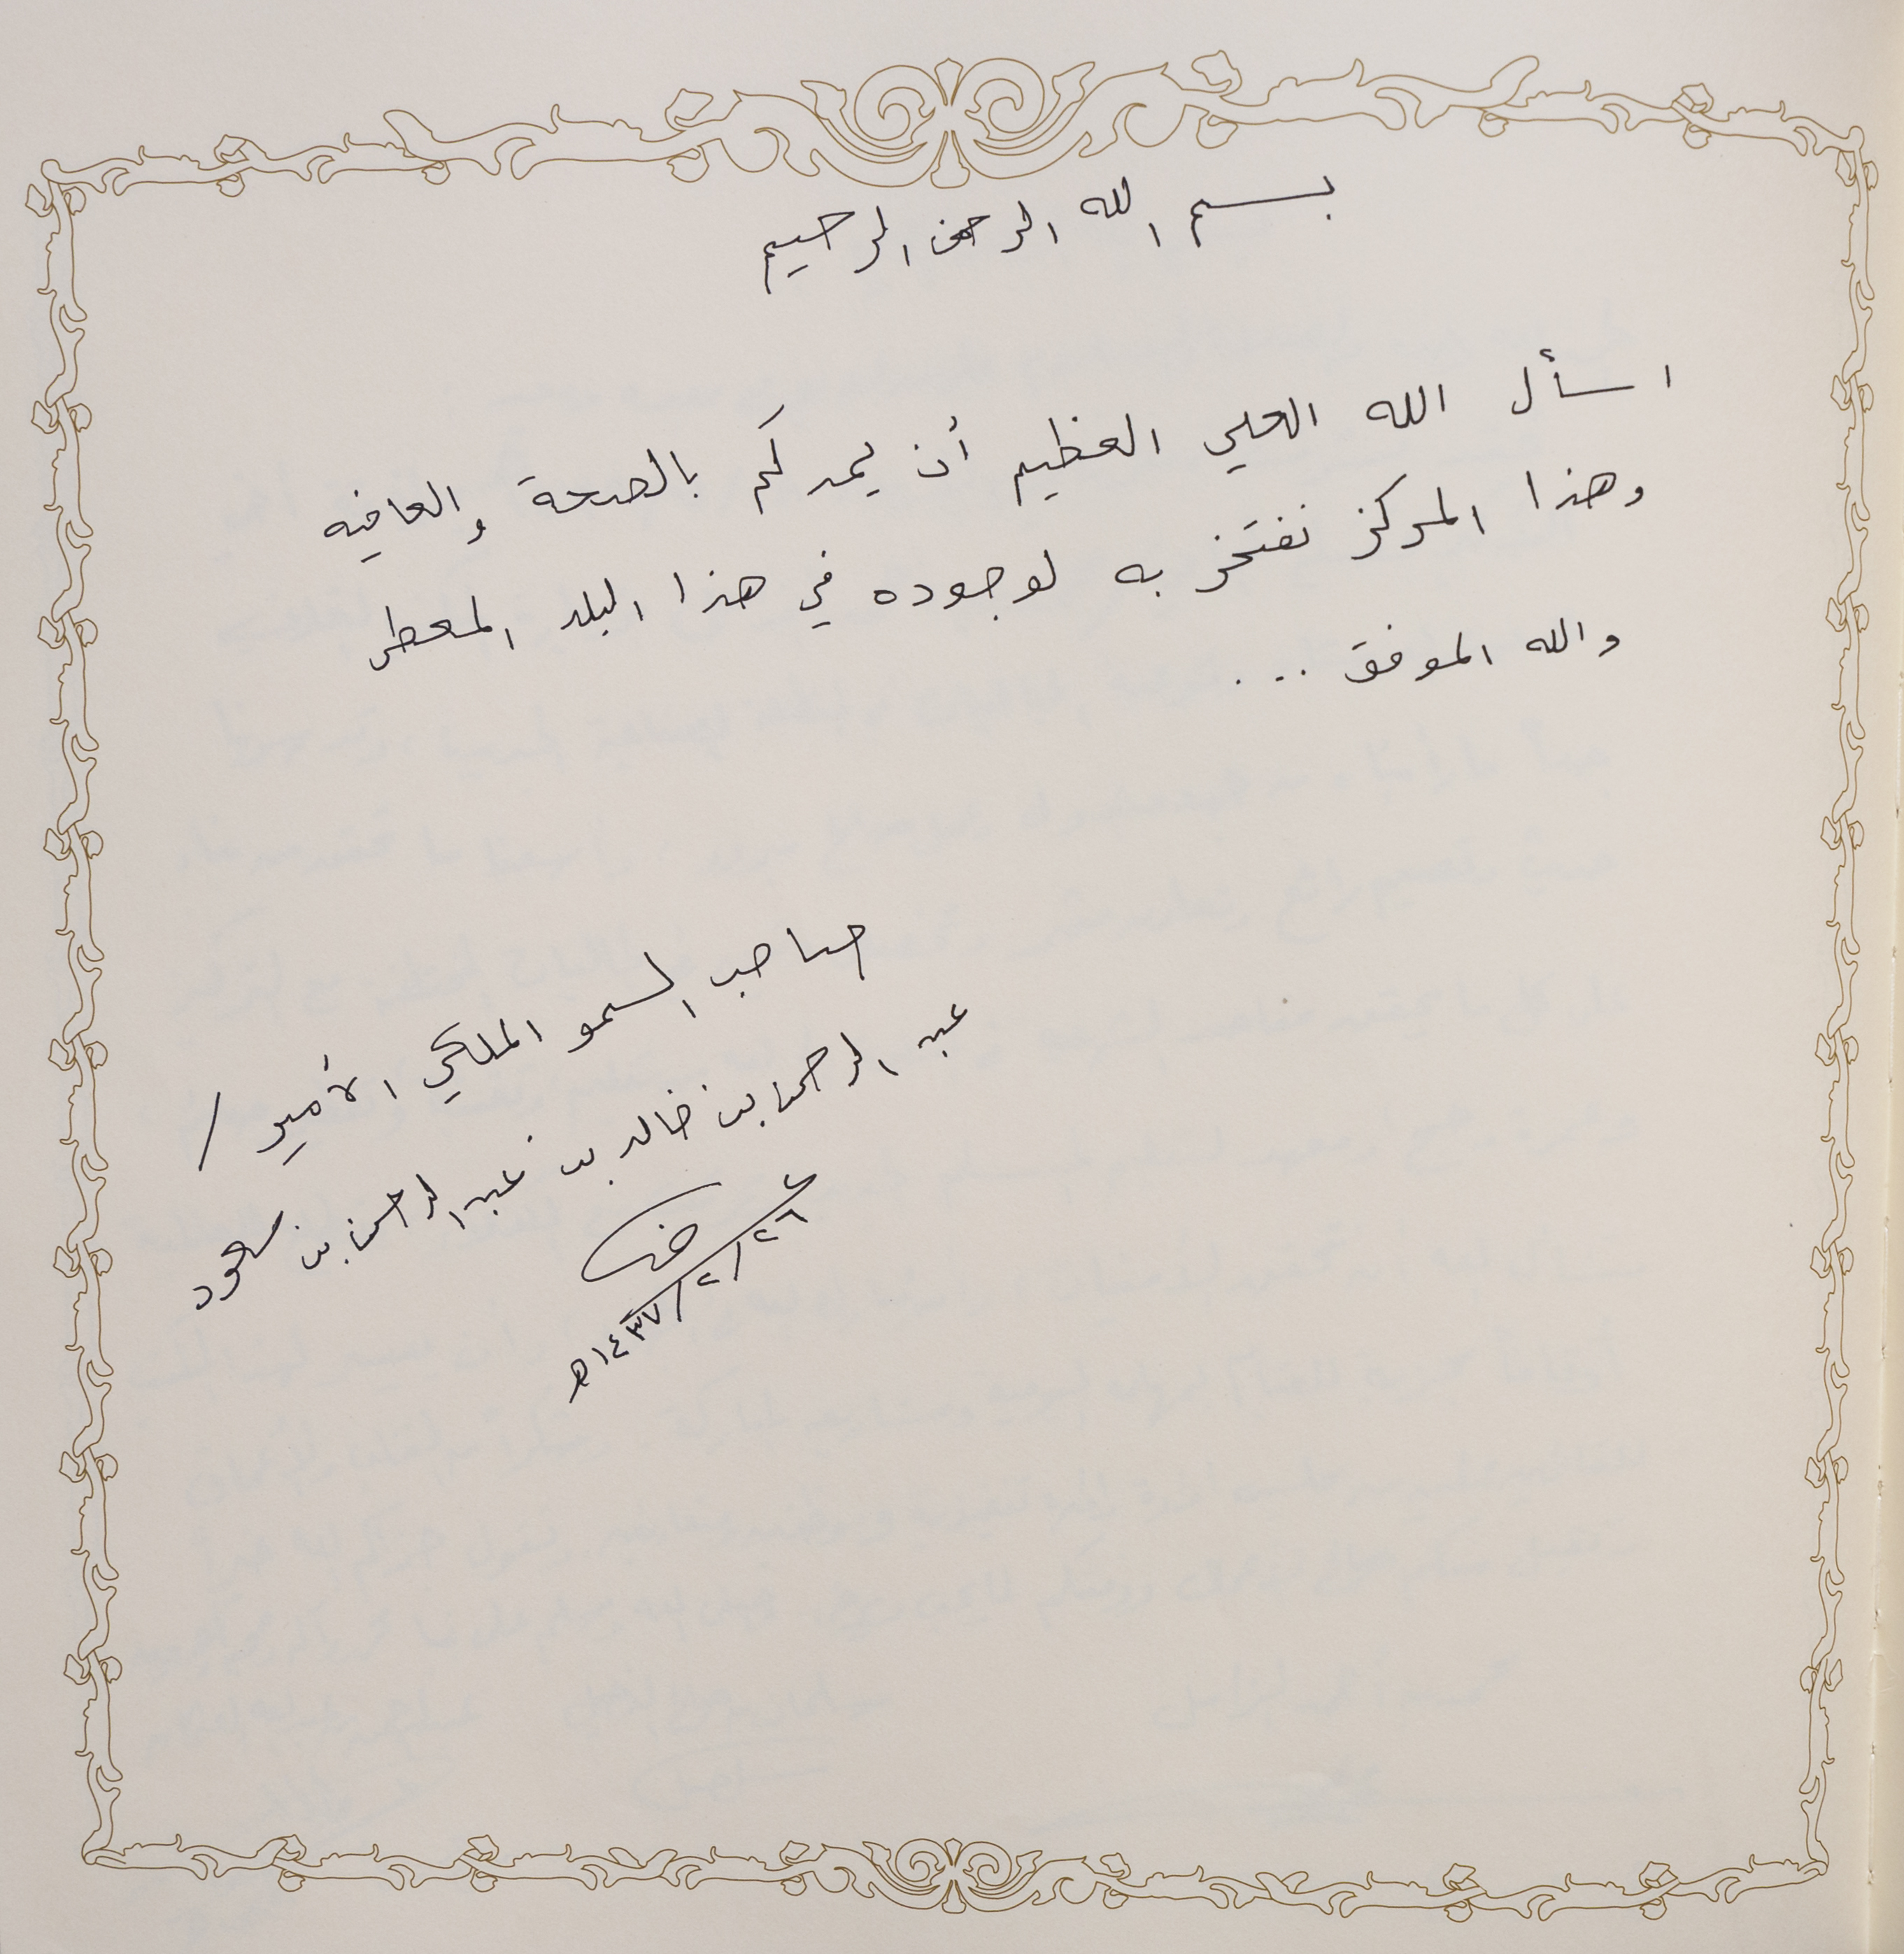 بسم الله الرحمن الرحيم
اسأل الله العلي العظيم أن يمدكم بالصحة والعافيه
وهذا المركز نفتخر به لوجوده في هذا البلد المعطر
والله الموفق ...
صاحب السمو الملكي الأمير /
عبد الرحمن بن خالد بن عبد الرحمن بن سعود
٢٦/٢/١٤٣٧ه